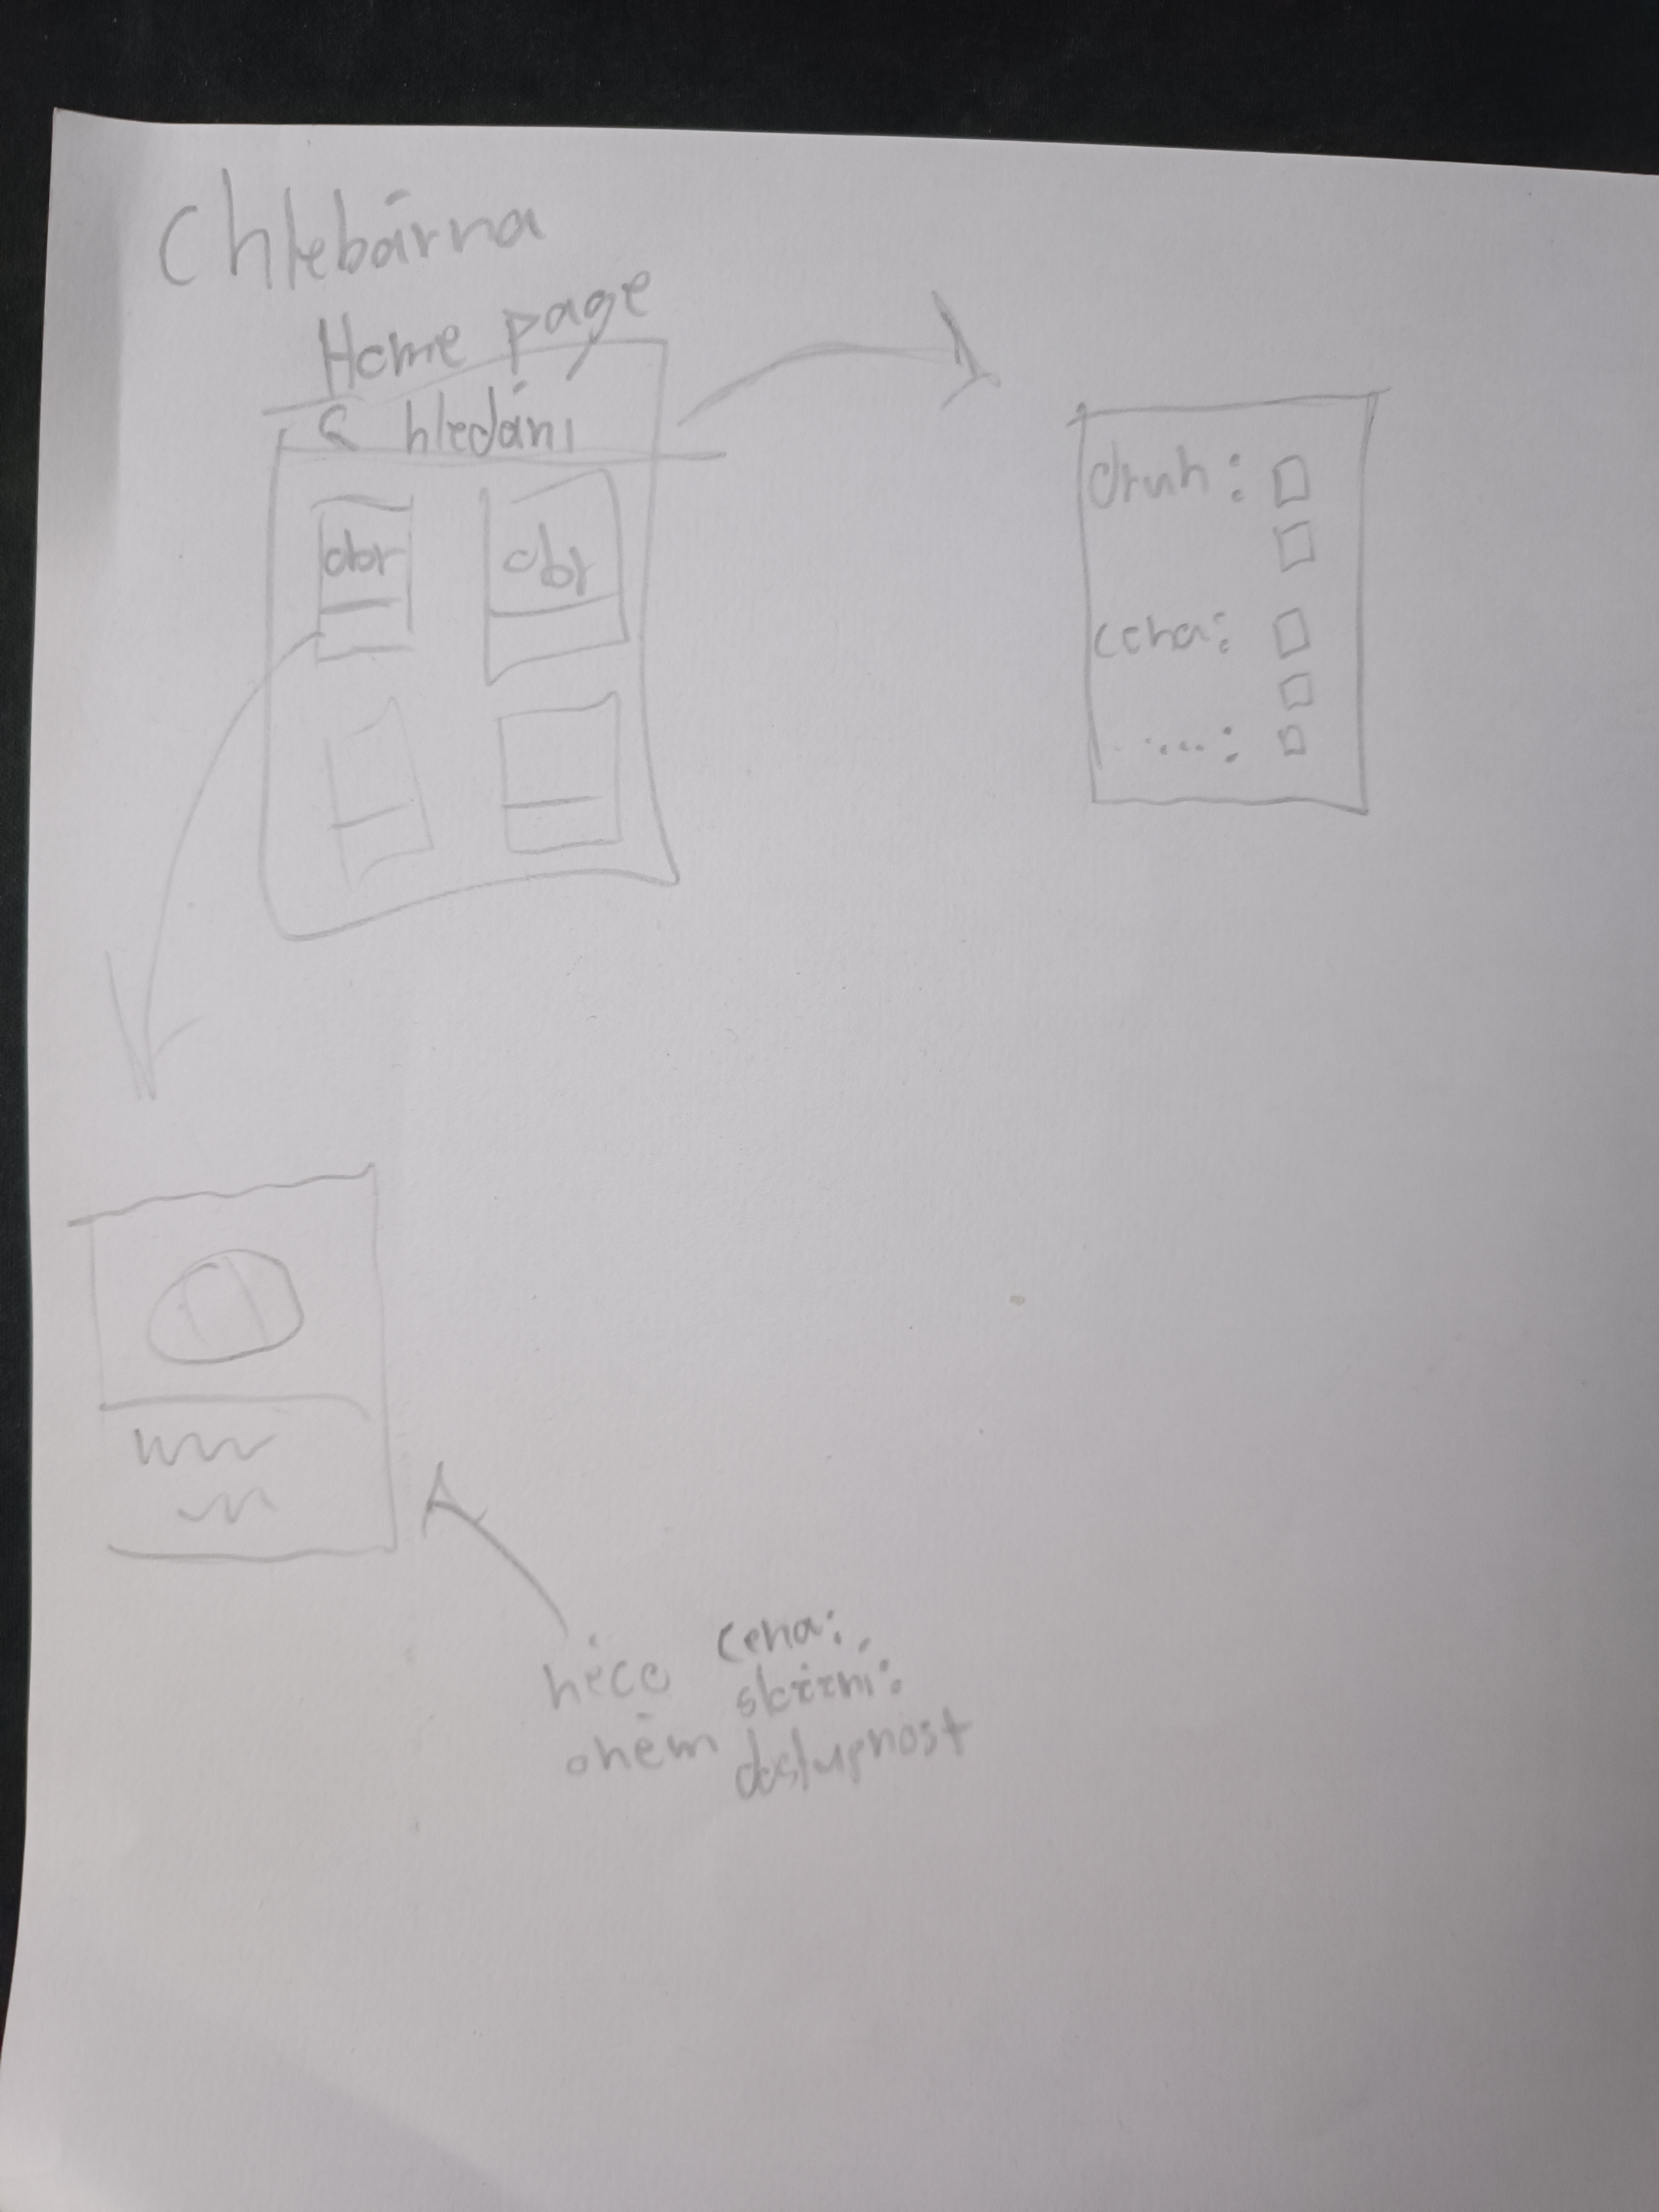 Chlebárna
Home page
hledání
obr
obr
druh:
cena:
.....:
něco
oněm
cena:
dostupnost